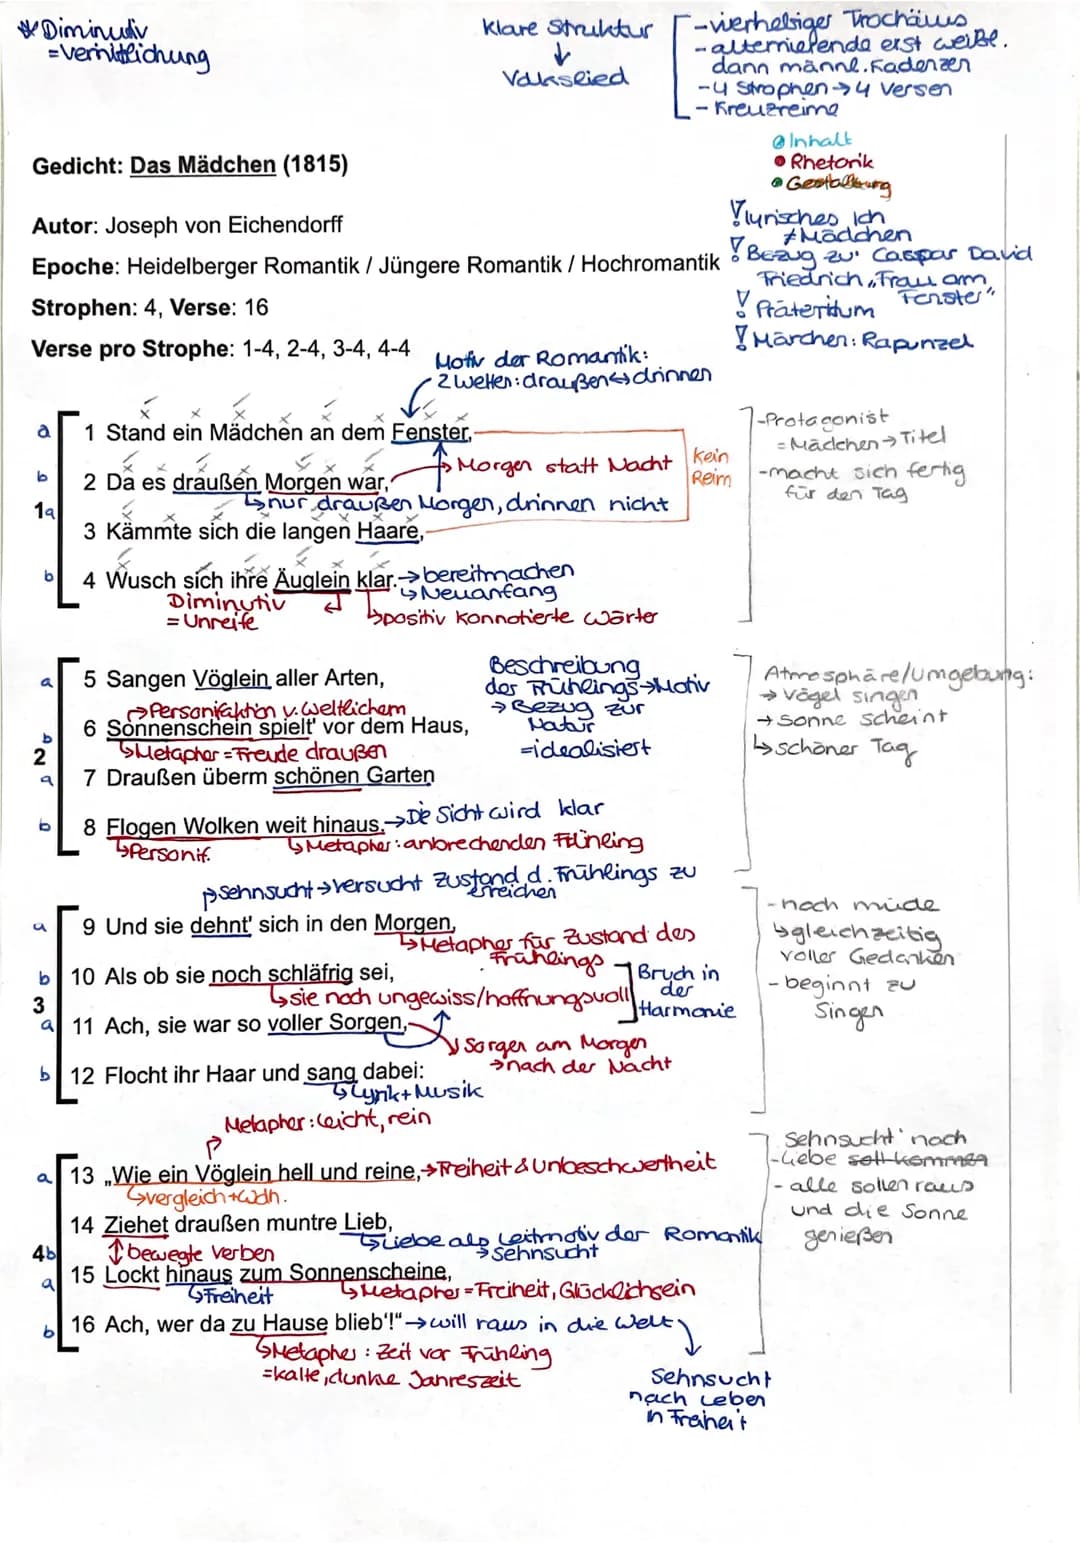 * Diminutiv
= Verniedlichung
Klare Struktur
↓
Volkslied
- vierhebiger Trochäus
- alternierende erst weibl.
dann männl. Kadenzen
- 4 Strophen → 4 Versen
- Kreuzreime
Inhalt
Rhetorik
Gestaltung
Gedicht: Das Mädchen (1815)
Autor: Joseph von Eichendorff
Epoche: Heidelberger Romantik / Jüngere Romantik / Hochromantik
Strophen: 4, Verse: 16
Verse pro Strophe: 1-4, 2-4, 3-4, 4-4
! lyrisches Ich
≠ Mädchen
! Bezug zu: Caspar David
Friedrich „Frau am
Fenster"
! Präteritum
! Märchen: Rapunzel
Motiv der Romantik:
2 Welten: draußen ↔ drinnen
a 1 Stand ein Mädchen an dem Fenster,
↳ Morgen statt Nacht
kein
Reim
b 2 Da es draußen Morgen war,
↳ nur draußen Morgen, drinnen nicht
1a
3 Kämmte sich die langen Haare,
b 4 Wusch sich ihre Äuglein klar. → bereitmachen
↳ Neuanfang
Diminutiv
= Unreife
↳ positiv konnotierte Wörter
- Protagonist
= Mädchen → Titel
- macht sich fertig
für den Tag
a 5 Sangen Vöglein aller Arten,
Beschreibung
des Frühlings → Motiv
→ Bezug zur
Natur
= idealisiert
→ Personifaktion v. Weltlichem
b 6 Sonnenschein spielt' vor dem Haus,
2
↳ Metapher = Freude draußen
a 7 Draußen überm schönen Garten
b 8 Flogen Wolken weit hinaus. → Die Sicht wird klar
↳ Personif.
↳ Metapher: anbrechenden Frühling
Atmosphäre/Umgebung:
→ Vögel singen
→ Sonne scheint
↳ schöner Tag
Sehnsucht → versucht Zustand d. Frühlings zu
erreichen
a 9 Und sie dehnt' sich in den Morgen,
↳ Metapher für Zustand des
Frühlings
b 10 Als ob sie noch schläfrig sei,
3
↳ sie noch ungewiss/hoffnungsvoll
Bruch in
der
Harmonie
a 11 Ach, sie war so voller Sorgen,
Sorgen am Morgen
→ nach der Nacht
b 12 Flocht ihr Haar und sang dabei:
↳ Lyrik + Musik
- noch müde
↳ gleichzeitig
voller Gedanken
- beginnt zu
Singen
Metapher: leicht, rein
a 13 „Wie ein Vöglein hell und reine, → Freiheit & Unbeschwertheit
↳ Vergleich + Wdh.
14 Ziehet draußen muntre Lieb,
↳ Liebe als Leitmotiv der Romantik
→ Sehnsucht
4b
↕ bewegte Verben
a 15 Lockt hinaus zum Sonnenscheine,
↳ Freiheit
↳ Metapher = Freiheit, Glücklichsein
b 16 Ach, wer da zu Hause blieb'!" → will raus in die Welt
↳ Metapher: Zeit vor Frühling
= kalte, dunkle Jahreszeit
Sehnsucht
nach Leben
in Freiheit
Sehnsucht nach
- Liebe soll kommen
- alle sollen raus
und die Sonne
genießen